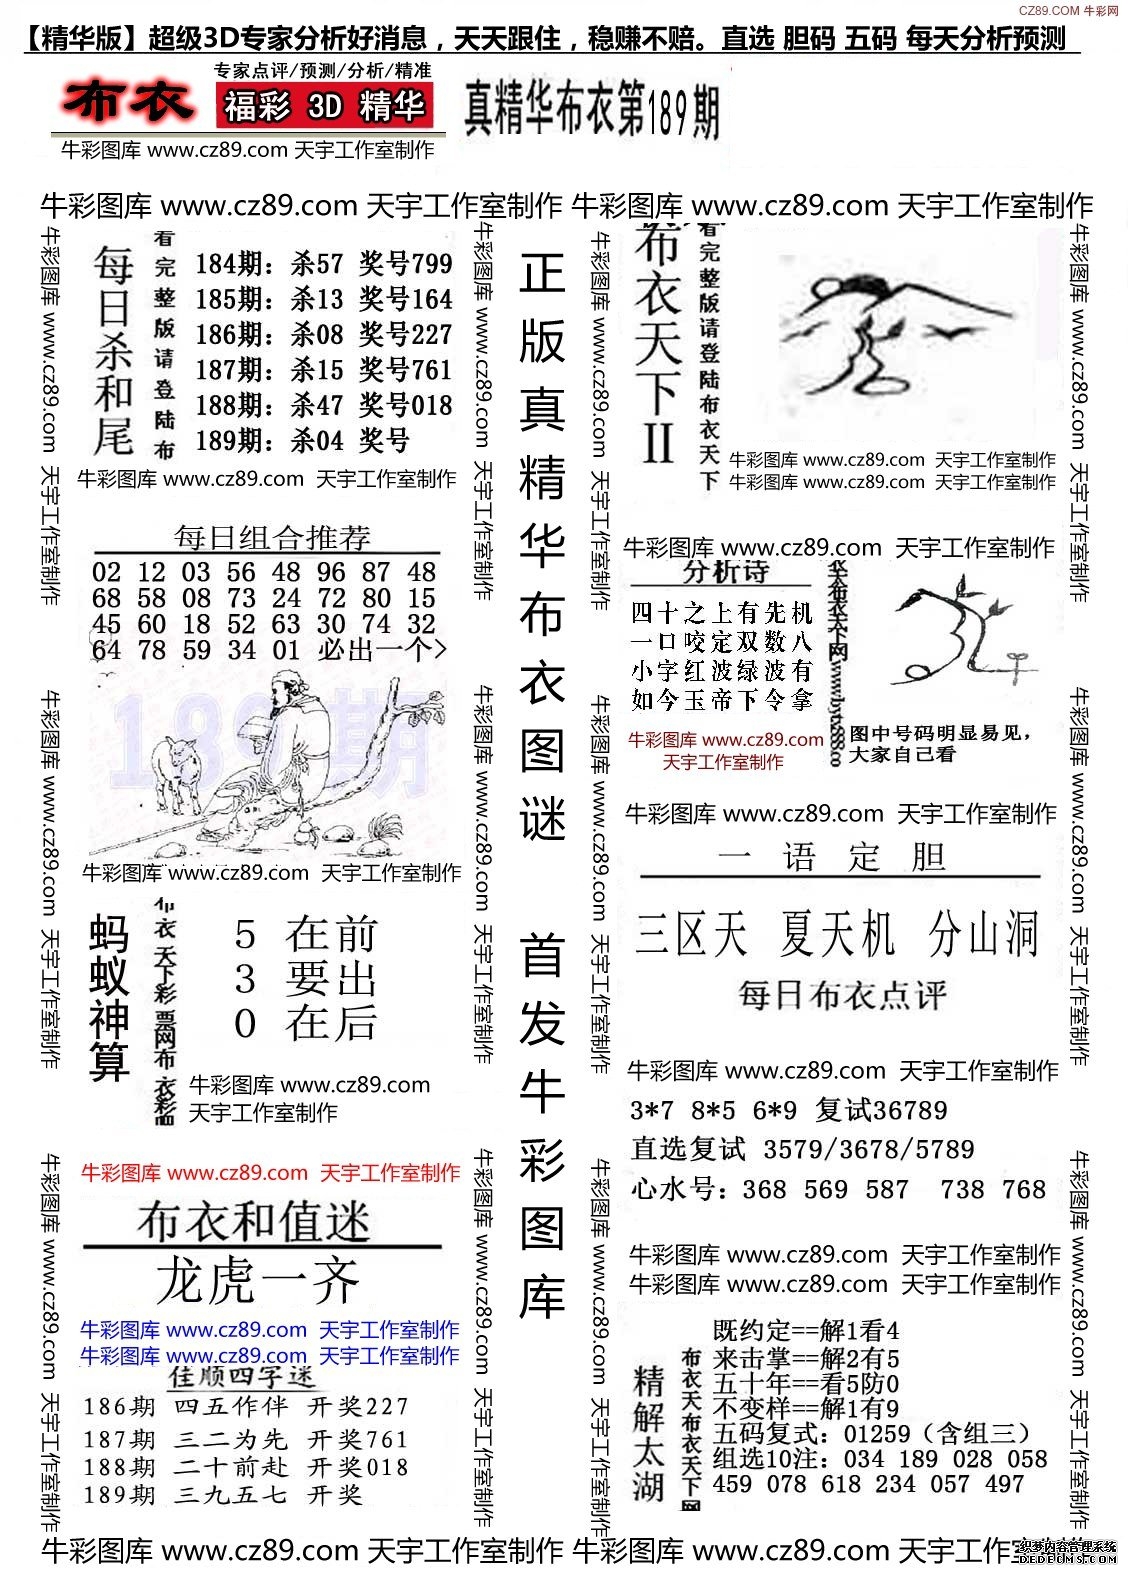 CZ89.COM 牛彩网
【精华版】超级3D专家分析好消息，天天跟住，稳赚不赔。直选 胆码 五码 每天分析预测
专家点评/预测/分析/精准
布衣
福彩 3D 精华
真精华布衣第189期
牛彩图库 www.cz89.com 天宇工作室制作
牛彩图库 www.cz89.com 天宇工作室制作 牛彩图库 www.cz89.com 天宇工作室制作
牛彩图库 www.cz89.com 天宇工作室制作
每日杀和尾
看完整版请登陆布
184期：杀57 奖号799
185期：杀13 奖号164
186期：杀08 奖号227
187期：杀15 奖号761
188期：杀47 奖号018
189期：杀04 奖号
牛彩图库 www.cz89.com 天宇工作室制作
牛彩图库 www.cz89.com 天宇工作室制作
每日组合推荐
02 12 03 56 48 96 87 48
68 58 08 73 24 72 80 15
45 60 18 52 63 30 74 32
64 78 59 34 01 必出一个>
189期
牛彩图库 www.cz89.com 天宇工作室制作
牛彩图库 www.cz89.com 天宇工作室制作
牛彩图库 www.cz89.com 天宇工作室制作
蚂蚁神算
布衣天下彩票网布衣彩
5 在前
3 要出
0 在后
牛彩图库 www.cz89.com
天宇工作室制作
牛彩图库 www.cz89.com 天宇工作室制作
布衣和值迷
龙虎一齐
牛彩图库 www.cz89.com 天宇工作室制作
牛彩图库 www.cz89.com 天宇工作室制作
佳顺四字迷
186期 四五作伴 开奖227
187期 三二为先 开奖761
188期 二十前赴 开奖018
189期 三九五七 开奖
牛彩图库 www.cz89.com 天宇工作室制作
牛彩图库 www.cz89.com 天宇工作室制作
正版真精华布衣图谜 首发牛彩图库
牛彩图库 www.cz89.com 天宇工作室制作
布衣天下II
看完整版请登陆布衣天下
牛彩图库 www.cz89.com 天宇工作室制作
牛彩图库 www.cz89.com 天宇工作室制作
牛彩图库 www.cz89.com 天宇工作室制作
牛彩图库 www.cz89.com 天宇工作室制作
分析诗
四十之上有先机
一口咬定双数八
小字红波绿波有
如今玉帝下令拿
牛彩图库 www.cz89.com
天宇工作室制作
图中号码明显易见，
大家自己看
牛彩图库 www.cz89.com 天宇工作室制作
牛彩图库 www.cz89.com 天宇工作室制作
牛彩图库 www.cz89.com 天宇工作室制作
一语定胆
三区天 夏天机 分山洞
每日布衣点评
牛彩图库 www.cz89.com 天宇工作室制作
3*7 8*5 6*9 复试36789
直选复试 3579/3678/5789
心水号：368 569 587 738 768
牛彩图库 www.cz89.com 天宇工作室制作
牛彩图库 www.cz89.com 天宇工作室制作
牛彩图库 www.cz89.com 天宇工作室制作
牛彩图库 www.cz89.com 天宇工作室制作
精解太湖
布衣天布衣天下网
既约定==解1看4
来击掌==解2有5
五十年==看5防0
不变样==解1有9
五码复式：01259（含组三）
组选10注：034 189 028 058
459 078 618 234 057 497
牛彩图库 www.cz89.com 天宇工作室制作 牛彩图库 www.cz89.com 天宇工作室制
织梦内容管理系统
DEDECMS.COM